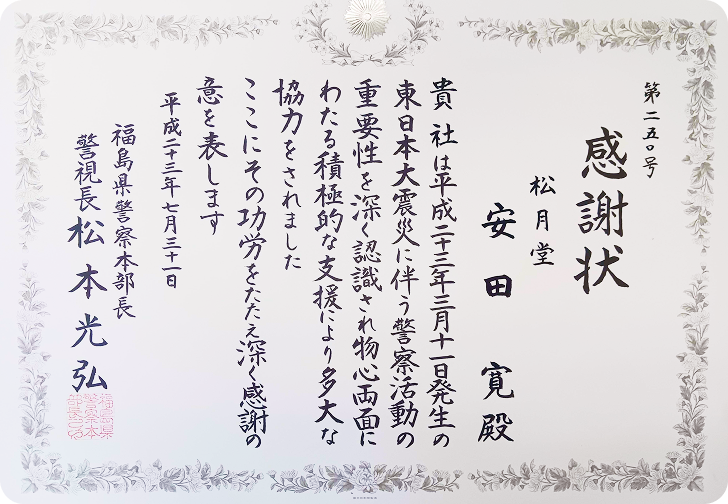 第二五〇号
感謝状
松月堂
安田寛殿
貴社は平成二十三年三月十一日発生の
東日本大震災に伴う警察活動の
重要性を深く認識され物心両面に
わたる積極的な支援により多大な
協力をされました
ここにその功労をたたえ深く感謝の
意を表します
平成二十三年七月三十一日
福島県警察本部長
警視長松本光弘
福島県
警察本
部長之印